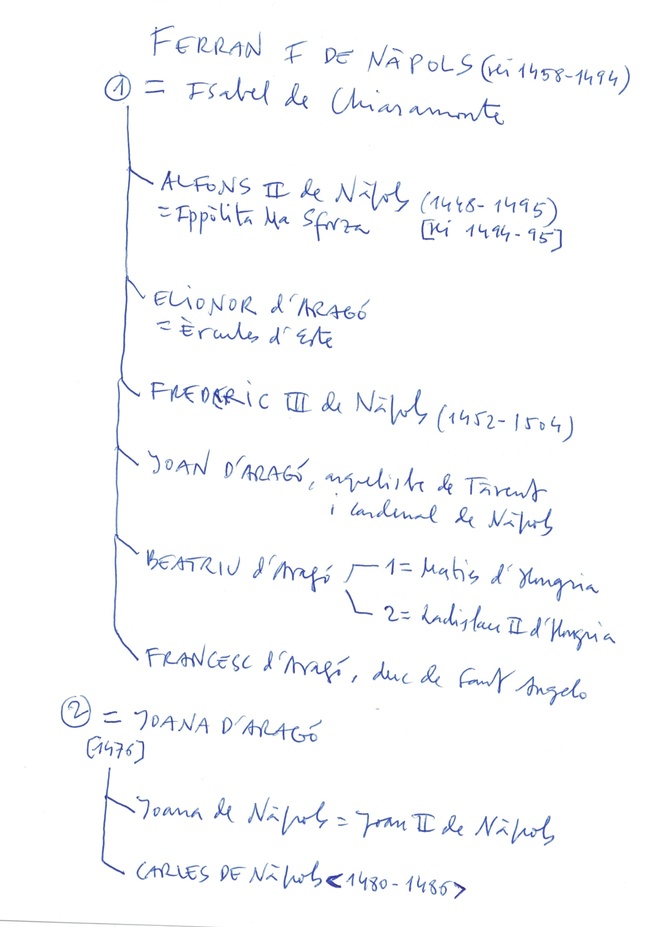 FERRAN I DE NÀPOLS (rei 1458-1494)
① = Isabel de Chiaramonte
ALFONS II de Nàpols (1448-1495)
= Ippòlita Ma Sforza [rei 1494-95]
ELIONOR d'ARAGÓ
= Èrcules d'Este
FREDERIC III de Nàpols (1452-1504)
JOAN D'ARAGÓ, arquebisbe de Tàrent
i cardenal de Nàpols
BEATRIU d'Aragó 1 = Maties d'Hongria
2 = Ladislau II d'Hongria
FRANCESC d'Aragó, duc de Sant Angelo
② = JOANA D'ARAGÓ
[1476]
Joana de Nàpols = Joan II de Nàpols
CARLES DE Nàpols <1480-1486>